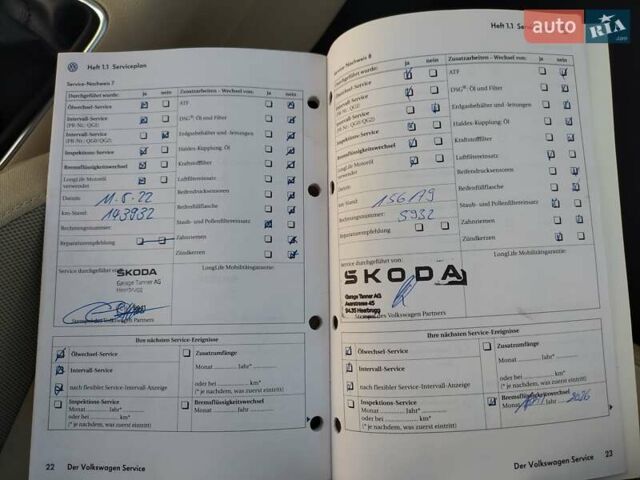 auto RIA
.com
Heft 1.1 Serviceplan
Service-Nachweis 7
Durchgeführt wurde: ja nein
Zusatzarbeiten - Wechsel von: ja nein
Ölwechsel-Service
ATF
Intervall-Service
(PR-Nr.: QG1)
DSG®: Öl und Filter
Intervall-Service
(PR-Nr.: QG0/QG2)
Erdgasbehälter und -leitungen
Inspektions-Service
Haldex-Kupplung: Öl
Bremsflüssigkeitswechsel
Kraftstofffilter
LongLife Motoröl
verwendet
Luftfiltereinsatz
Reifendrucksensoren
Datum: 11.5.22
Reifenfüllflasche
km-Stand: 143932
Rechnungsnummer:
Staub- und Pollenfiltereinsatz
Reparaturempfehlung
Zahnriemen
Zündkerzen
Service durchgeführt von:
LongLife Mobilitätsgarantie:
ŠKODA
Garage Tanner AG
Heerbrugg
Stempel des Volkswagen Partners
Ihre nächsten Service-Ereignisse
Ölwechsel-Service
Intervall-Service
nach flexibler Service-Intervall-Anzeige
Zusatzumfänge
Monat Jahr*
oder bei km*
(* je nachdem, was zuerst eintritt)
Inspektions-Service
Monat Jahr*
(* je nachdem, was zuerst eintritt)
Bremsflüssigkeitswechsel
Monat Jahr
22 Der Volkswagen Service
Heft 1.1 Service
Service-Nachweis 8
Durchgeführt wurde: ja nein
Zusatzarbeiten - Wechsel von: ja nein
Ölwechsel-Service
ATF
Intervall-Service
(PR-Nr.: QG1)
DSG®: Öl und Filter
Intervall-Service
(PR-Nr.: QG0/QG2)
Erdgasbehälter und -leitungen
Inspektions-Service
Haldex-Kupplung: Öl
Bremsflüssigkeitswechsel
Kraftstofffilter
LongLife Motoröl
verwendet
Luftfiltereinsatz
Reifendrucksensoren
Datum:
Reifenfüllflasche
km-Stand:
Staub- und Pollenfiltereinsatz
Rechnungsnummer: 5932
Zahnriemen
Reparaturempfehlung
Zündkerzen
Service durchgeführt von:
LongLife Mobilitätsgarantie:
ŠKODA
Garage Tanner AG
Auerstrasse 45
9435 Heerbrugg
des Volkswagen Partners
Ihre nächsten Service-Ereignisse
Ölwechsel-Service
Intervall-Service
nach flexibler Service-Intervall-Anzeige
Zusatzumfänge
Monat Jahr*
oder bei km*
(* je nachdem, was zuerst eintritt)
Inspektions-Service
Monat Jahr*
oder bei km*
(* je nachdem, was zuerst eintritt)
Bremsflüssigkeitswechsel
Monat Jahr 2026
Der Volkswagen Service 23